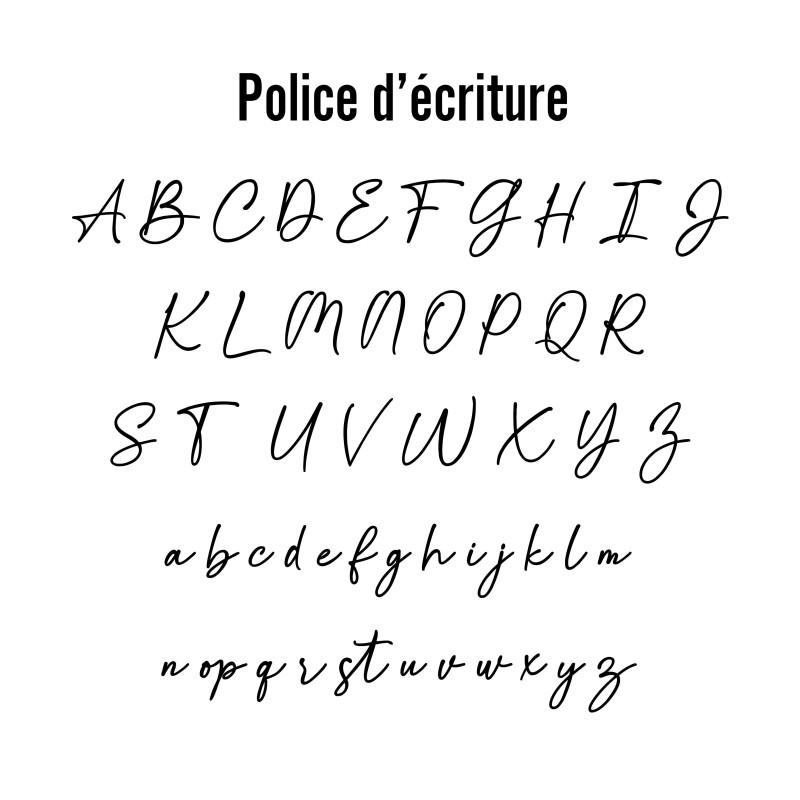 Police d’écriture
A B C D E F G H I J
K L M N O P Q R
S T U V W X Y Z
a b c d e f g h i j k l m
n o p q r s t u v w x y z